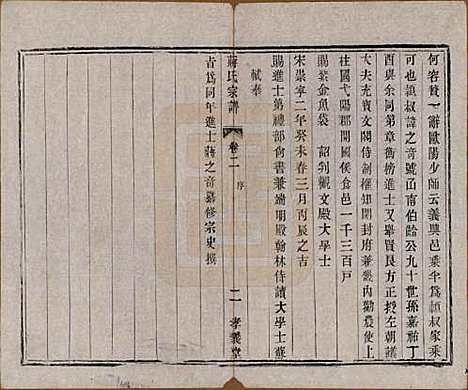 何容贅一辭歐陽少師云義興邑乘半爲恒叔家乘
可也穎叔諱之奇號山南伯齡公九十世孫嘉祐丁
酉與余同第章衡榜進士又舉賢良方正授左朝議
大夫充寶文閣侍制權知開封府兼畿內勸農使上
柱國弋陽郡開國侯食邑一千三百戸
賜紫金魚袋 詔判觀文殿大學士
宋崇寧二年癸未春三月丙辰之吉
賜進士第禮部尙書兼端明殿翰林侍讀大學士蘇
軾奉
蔣氏家譜 卷二 序 二 孝義堂
旨爲同年進士蔣之奇纂修宗史撰